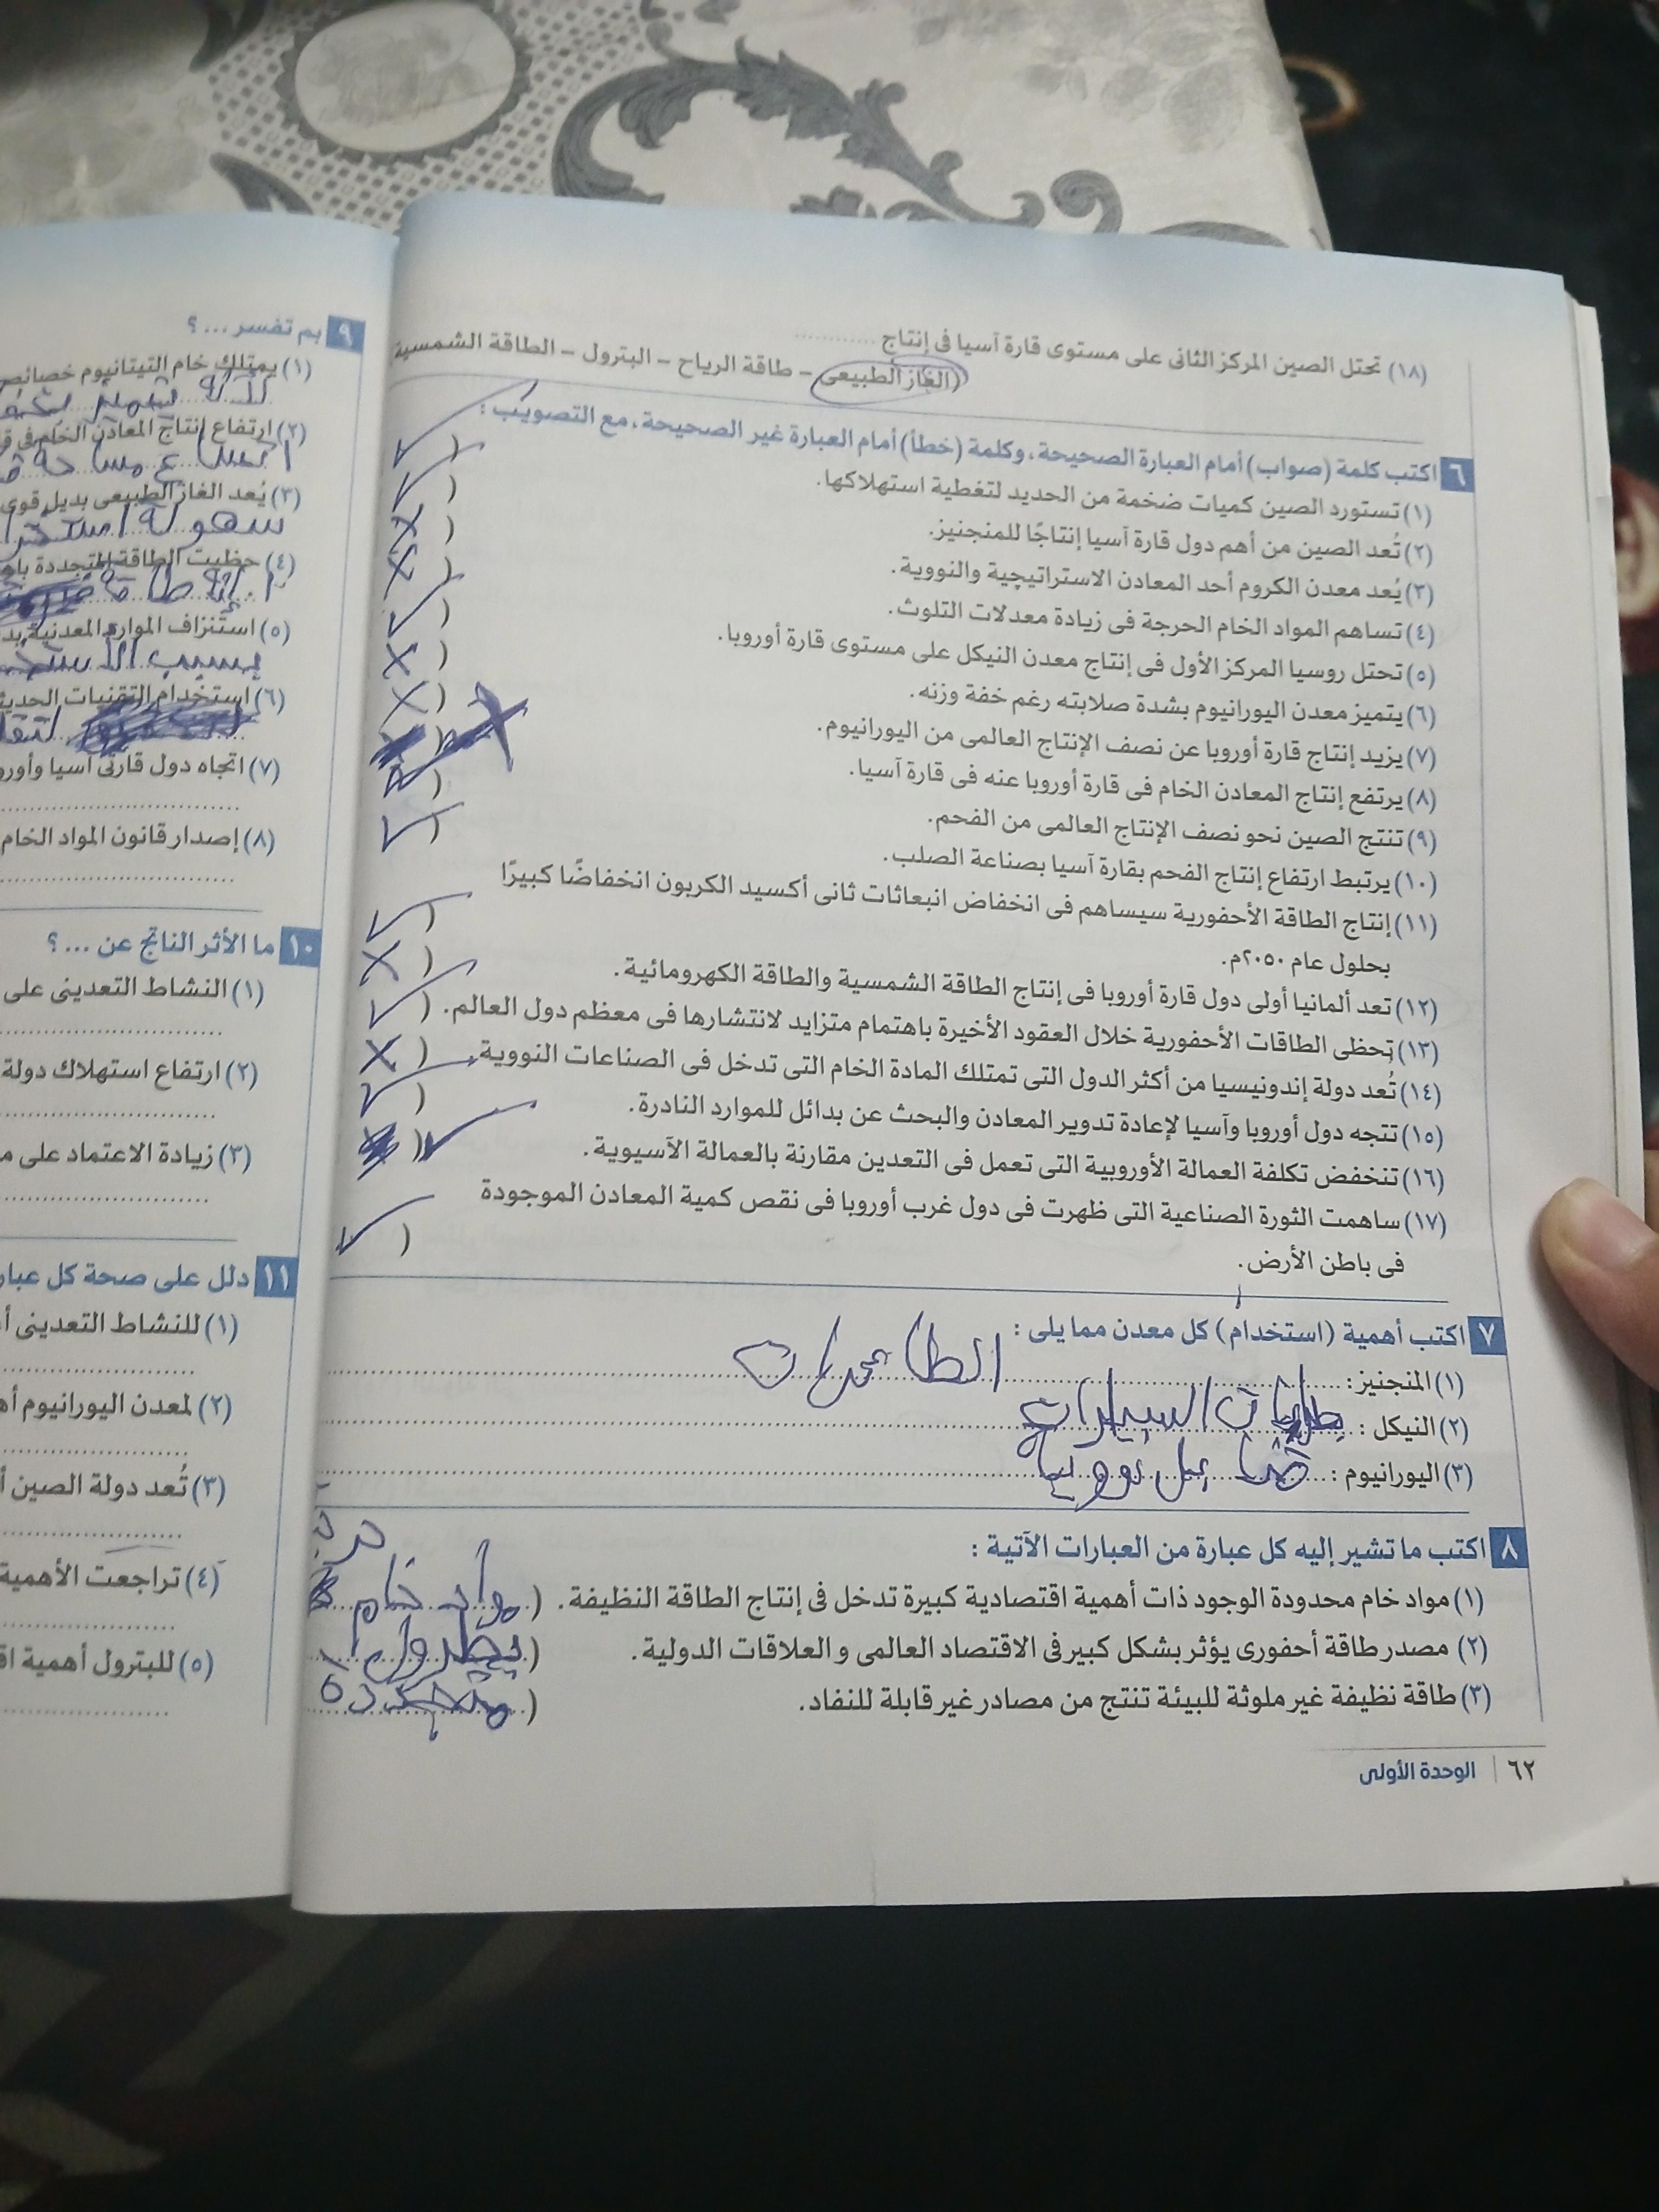 (١٨) تحتل الصين المركز الثانى على مستوى قارة آسيا فى إنتاج ............
(الغاز الطبيعى – طاقة الرياح – البترول – الطاقة الشمسية
٦ اكتب كلمة (صواب) أمام العبارة الصحيحة، وكلمة (خطأ) أمام العبارة غير الصحيحة، مع التصويب :
(١) تستورد الصين كميات ضخمة من الحديد لتغطية استهلاكها. ( ✓
(٢) تُعد الصين من أهم دول قارة آسيا إنتاجًا للمنجنيز. ( ✓
(٣) يُعد معدن الكروم أحد المعادن الاستراتيچية والنووية. ( ✗
(٤) تساهم المواد الخام الحرجة فى زيادة معدلات التلوث. ( ✗
(٥) تحتل روسيا المركز الأول فى إنتاج معدن النيكل على مستوى قارة أوروبا. ( ✓
(٦) يتميز معدن اليورانيوم بشدة صلابته رغم خفة وزنه. ( ✗
(٧) يزيد إنتاج قارة أوروبا عن نصف الإنتاج العالمى من اليورانيوم. ( ✗
(٨) يرتفع إنتاج المعادن الخام فى قارة أوروبا عنه فى قارة آسيا. ( ✗
(٩) تنتج الصين نحو نصف الإنتاج العالمى من الفحم. ( ✓
(١٠) يرتبط ارتفاع إنتاج الفحم بقارة آسيا بصناعة الصلب. ( ✓
(١١) إنتاج الطاقة الأحفورية سيساهم فى انخفاض انبعاثات ثانى أكسيد الكربون انخفاضًا كبيرًا
بحلول عام ٢٠٥٠م. ( ✓
(١٢) تعد ألمانيا أولى دول قارة أوروبا فى إنتاج الطاقة الشمسية والطاقة الكهرومائية. ( ✗
(١٣) تحظى الطاقات الأحفورية خلال العقود الأخيرة باهتمام متزايد لانتشارها فى معظم دول العالم. ( ✓
(١٤) تُعد دولة إندونيسيا من أكثر الدول التى تمتلك المادة الخام التى تدخل فى الصناعات النووية. ( ✗
(١٥) تتجه دول أوروبا وآسيا لإعادة تدوير المعادن والبحث عن بدائل للموارد النادرة. ( ✓
(١٦) تنخفض تكلفة العمالة الأوروبية التى تعمل فى التعدين مقارنة بالعمالة الآسيوية. ( ✓
(١٧) ساهمت الثورة الصناعية التى ظهرت فى دول غرب أوروبا فى نقص كمية المعادن الموجودة
فى باطن الأرض. ( ✓
٧ اكتب أهمية (استخدام) كل معدن مما يلى :
(١) المنجنيز :
(٢) النيكل : السيارات
(٣) اليورانيوم :
٨ اكتب ما تشير إليه كل عبارة من العبارات الآتية :
(١) مواد خام محدودة الوجود ذات أهمية اقتصادية كبيرة تدخل فى إنتاج الطاقة النظيفة. ( مواد خام
(٢) مصدر طاقة أحفورى يؤثر بشكل كبير فى الاقتصاد العالمى والعلاقات الدولية. (
(٣) طاقة نظيفة غير ملوثة للبيئة تنتج من مصادر غير قابلة للنفاد. (
٦٢ | الوحدة الأولى
٩ بم تفسر ... ؟
(١) يمتلك خام التيتانيوم خصائص
(٢) ارتفاع إنتاج المعادن الخام فى
(٣) يُعد الغاز الطبيعى بديل قوى
سهولة
(٤) حظيت الطاقة المتجددة
(٥) استنزاف الموارد المعدنية
بسبب
(٦) استخدام التقنيات الحديثة
(٧) اتجاه دول قارتى آسيا
(٨) إصدار قانون المواد الخام
١٠ ما الأثر الناتج عن ... ؟
(١) النشاط التعدينى على
(٢) ارتفاع استهلاك دولة
(٣) زيادة الاعتماد على
١١ دلل على صحة كل
(١) للنشاط التعدينى
(٢) لمعدن اليورانيوم
(٣) تُعد دولة الصين
(٤) تراجعت الأهمية
(٥) للبترول أهمية